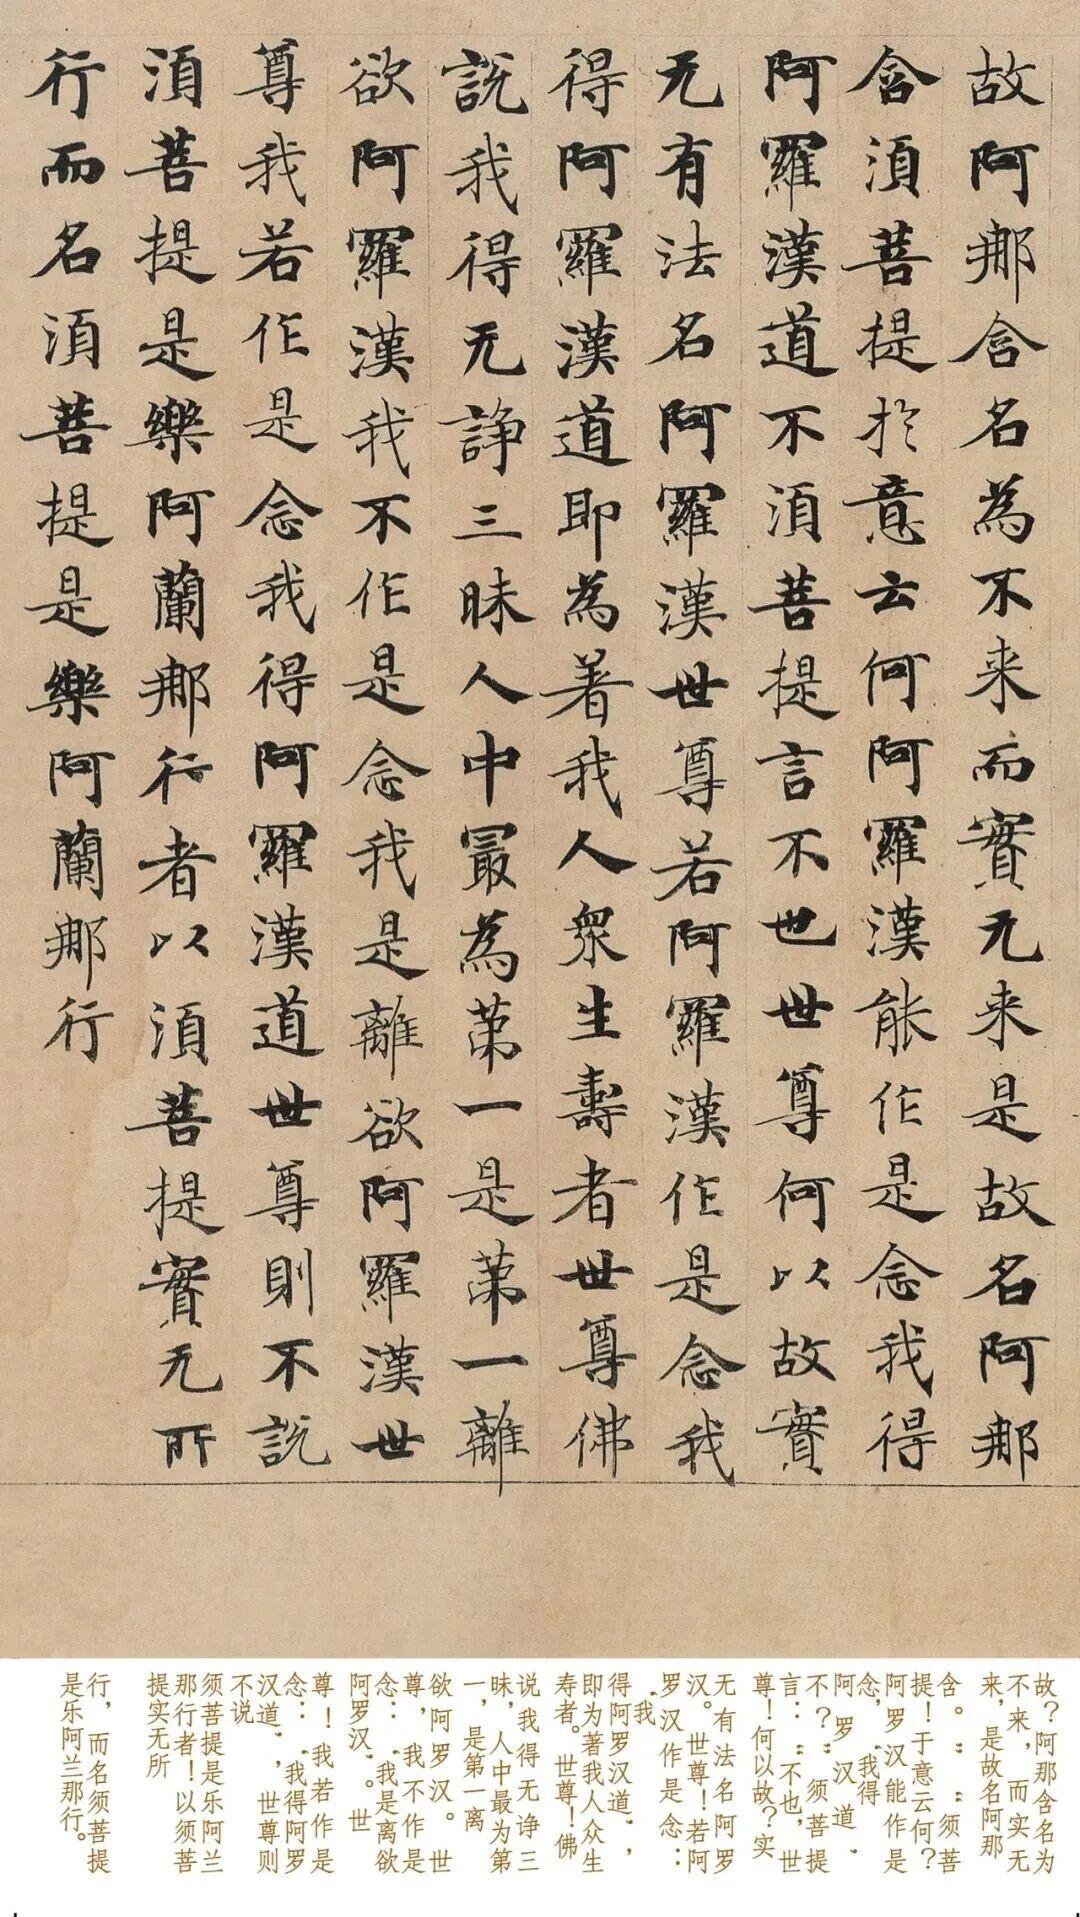 故阿那含名為不来而實无来是故名阿那
含須菩提於意云何阿羅漢能作是念我得
阿羅漢道不須菩提言不也世尊何以故實
无有法名阿羅漢世尊若阿羅漢作是念我
得阿羅漢道即為著我人衆生壽者世尊佛
説我得无諍三昧人中最為第一是第一離
欲阿羅漢我不作是念我是離欲阿羅漢世
尊我若作是念我得阿羅漢道世尊則不説
須菩提是樂阿蘭那行者以須菩提實无所
行而名須菩提是樂阿蘭那行
故？阿那含名为
不来，而实无
来，是故名阿那
含。”“须菩
提！于意云何？
阿罗汉能作是
念，‘我得
阿罗汉道’
不？”须菩提
言：“不也，世
尊！何以故？实
无有法名阿罗
汉。世尊！若阿
罗汉作是念：
‘我
得阿罗汉道’，
即为著我人众生
寿者。世尊！佛
说我得无诤三
昧，人中最为第
一，是第一离
欲阿罗汉。世
尊，我不作是
念：‘我是离欲
阿罗汉’。世
尊！我若作是
念：‘我得阿罗
汉道’，世尊则
不说
须菩提是乐阿兰
那行者！以须菩
提实无所
行，而名须菩提
是乐阿兰那行。